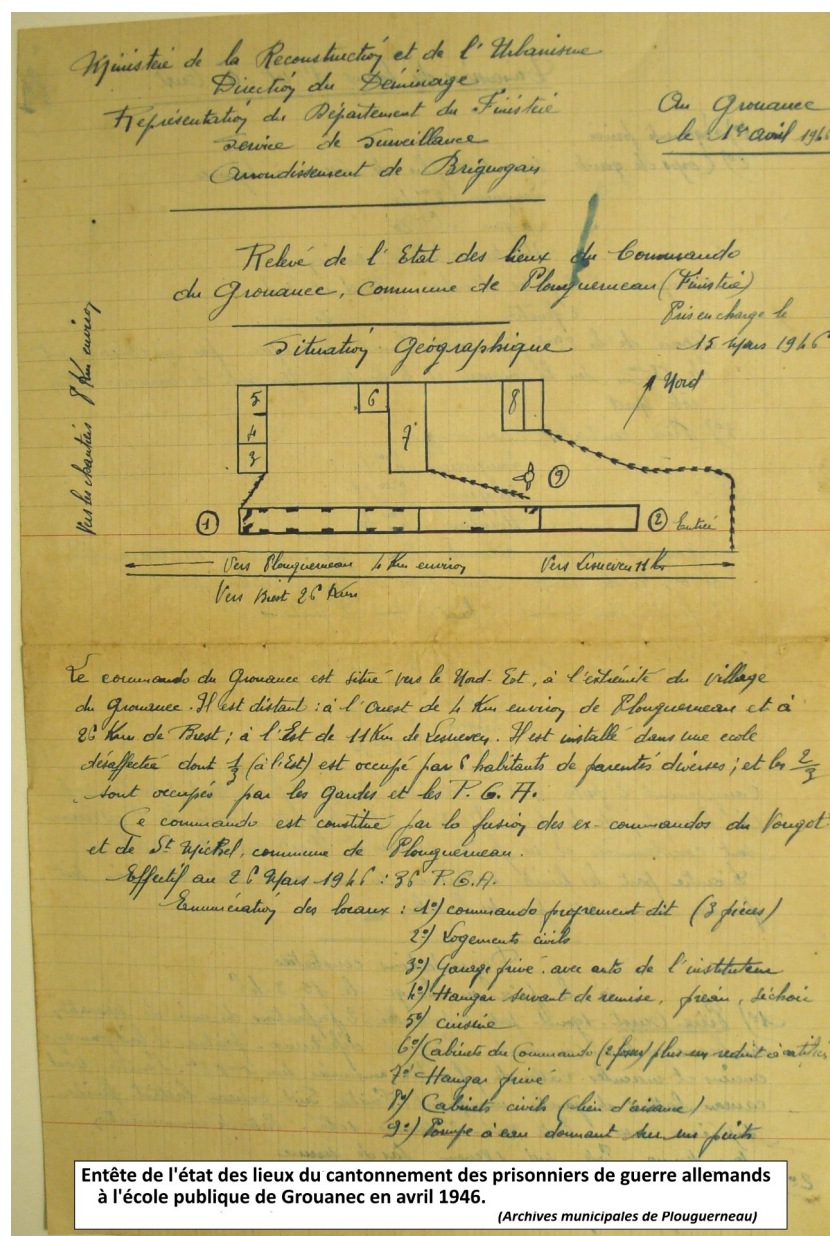 Ministère de la Reconstruction et de l'Urbanisme
Direction du Déminage
Représentation du Département du Finistère
Service de Surveillance
Arrondissement de Brignogan
Au Grouanec
le 1er avril 1946
Relevé de l'Etat des lieux du Commando
du Grouanec, Commune de Plouguerneau (Finistère)
Pris en charge le
15 Mars 1946
Situation Géographique
Nord
Vers les chantiers 8 Km environ
5
4
3
6
7
8
9
1
2 Entrée
Vers Plouguerneau 4 Km environ
Vers Lesneven 11 Km
Vers Brest 26 Km
Le commando du Grouanec est situé vers le Nord-Est, à l'extrémité du village
du Grouanec. Il est distant : à l'Ouest de 4 Km environ de Plouguerneau et à
26 Km de Brest ; à l'Est de 11 Km de Lesneven. Il est installé dans une école
désaffectée dont 1/3 (à l'Est) est occupé par 6 habitants de parentés diverses ; et les 2/3
sont occupés par les gardes et les P.G.A.
Ce commando est constitué par la fusion des ex-commandos du Vougot
et de St Michel, commune de Plouguerneau.
Effectif au 26 Mars 1946 : 36 P.G.A.
Enumération des locaux : 1°) commando proprement dit (3 pièces)
2°) Logements civils
3°) Garage privé avec auto de l'instituteur
4°) Hangar servant de remise, préau, séchoir
5°) cuisine
6°) Cabinets du Commando (2 fosses) plus un réduit à
7°) Hangar privé
8°) Cabinets civils (lieu d'aisance)
9°) Pompe à eau donnant sur un puits
Entête de l'état des lieux du cantonnement des prisonniers de guerre allemands
à l'école publique de Grouanec en avril 1946.
(Archives municipales de Plouguerneau)